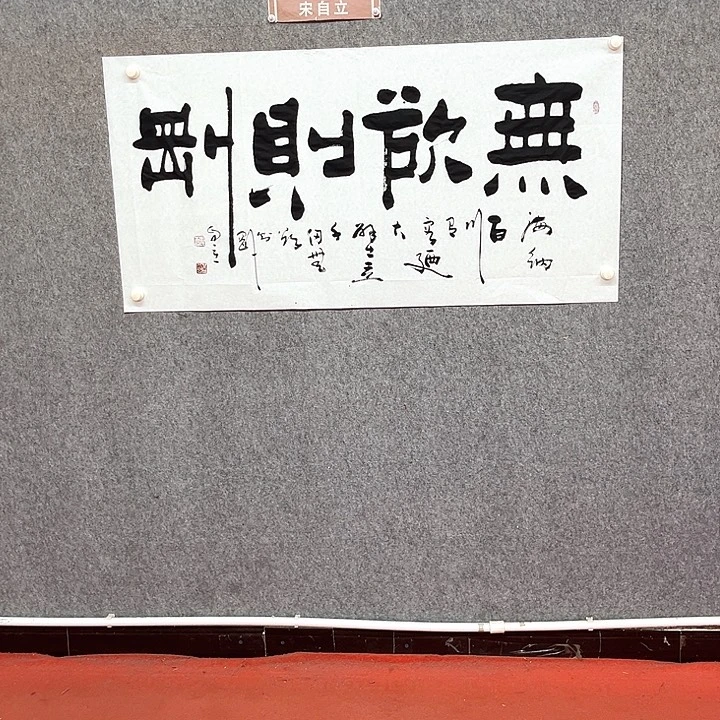 宋自立
無欲則剛
海納百川有容廼大壁立千仞無欲則剛
自立